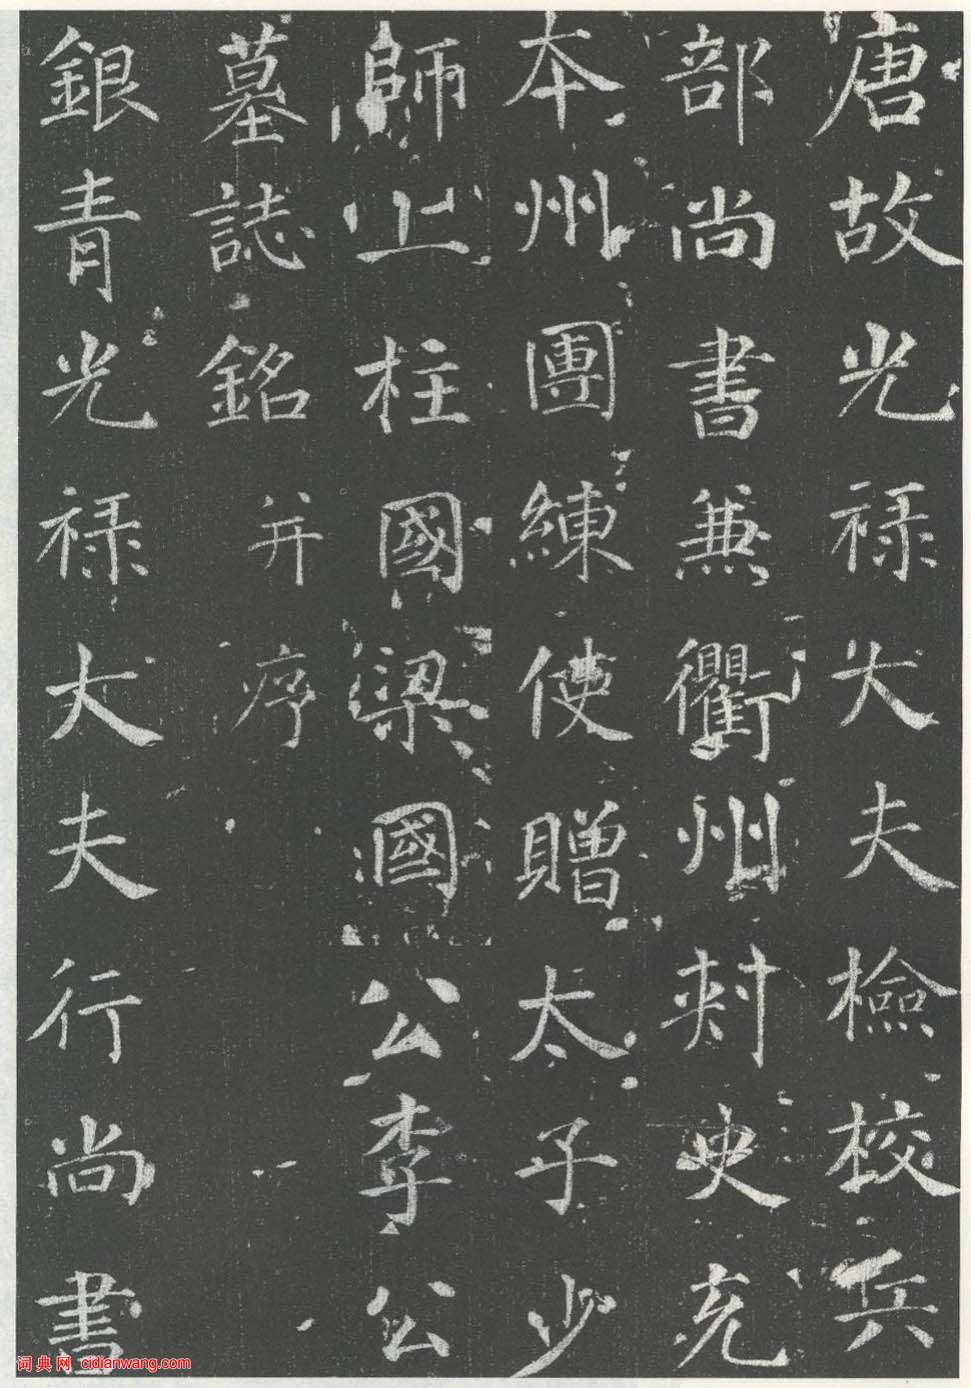 唐故光祿大夫檢校兵
部尚書兼衢州刺史充
本州團練使贈太子少
師上柱國梁國公李公
墓誌銘并序
銀青光祿大夫行尚書
词典网 cidianwang.com